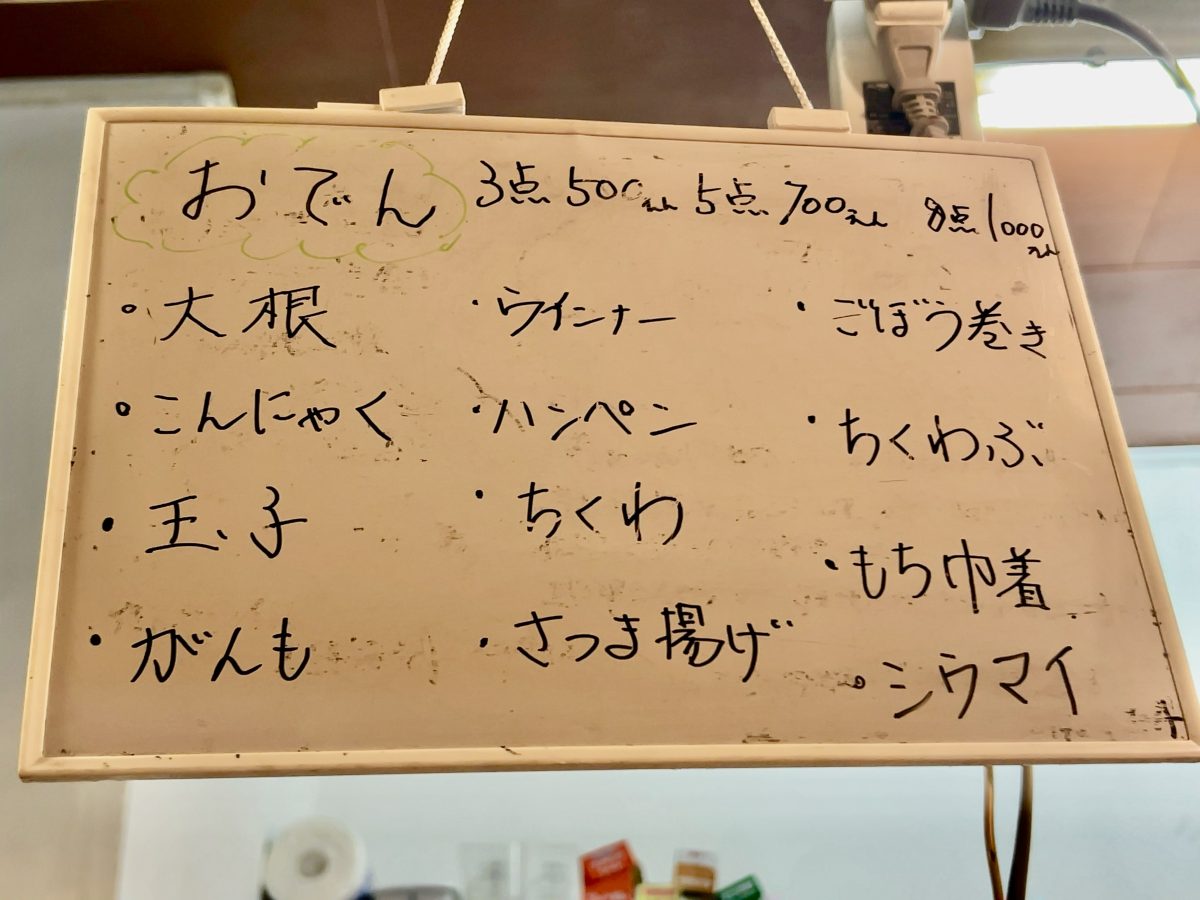 おでん 3点 500えん 5点 700えん 8点 1000えん
・大根
・こんにゃく
・玉子
・がんも
・ウインナー
・ハンペン
・ちくわ
・さつま揚げ
・ごぼう巻き
・ちくわぶ
・もち巾着
・シウマイ